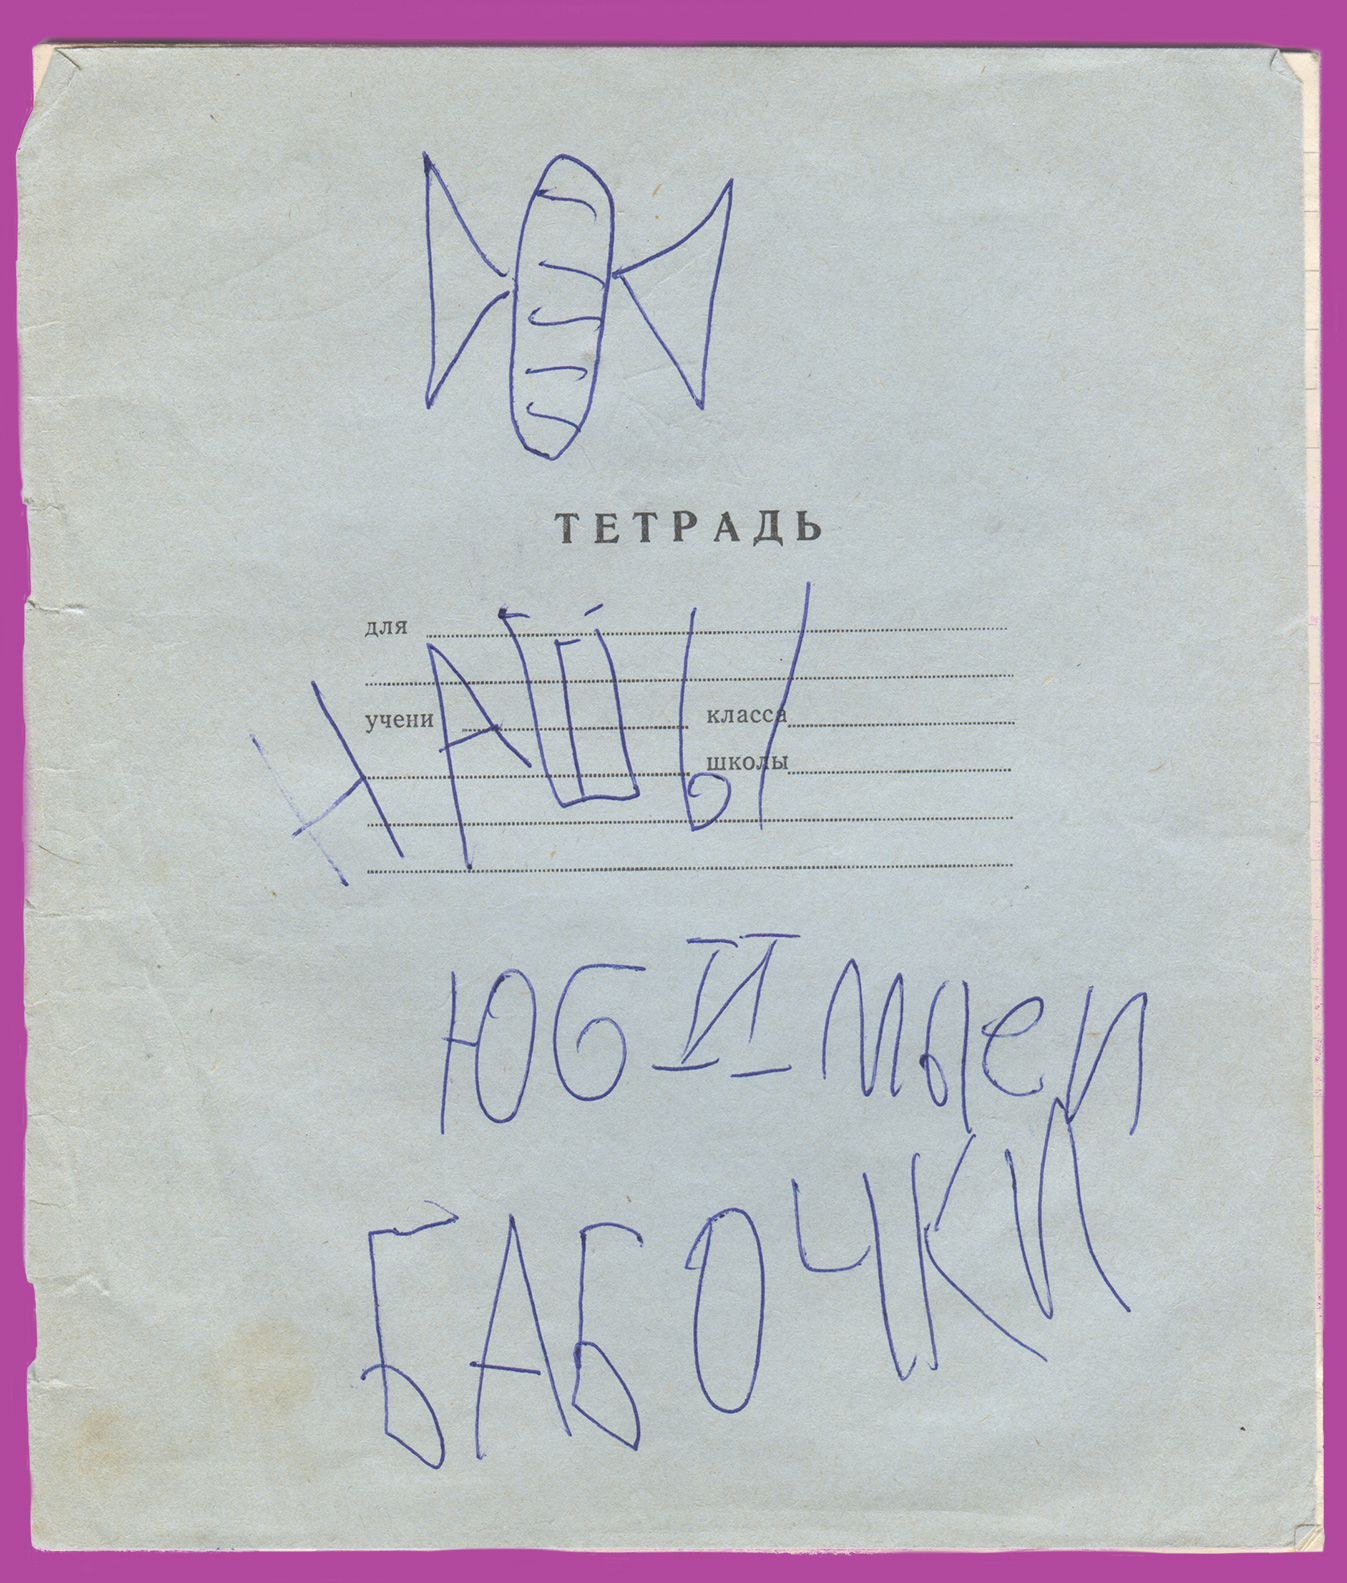 ТЕТРАДЬ
для
учени класса
школы
НАШЫ
ЮБИМЫЕИ
БАБОЧКИ